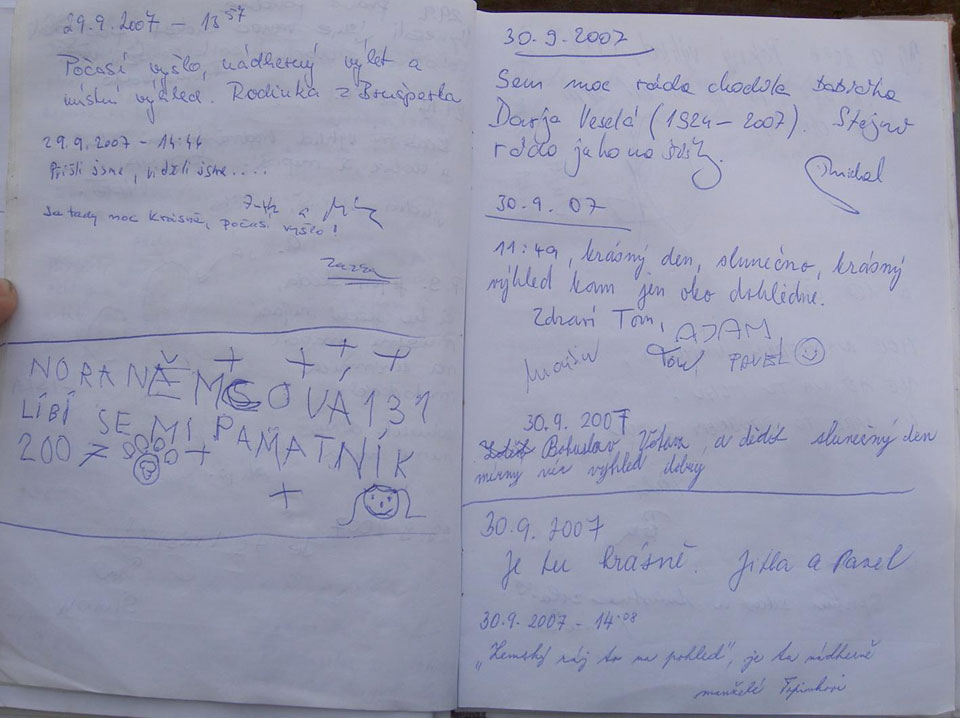 29.9.2007 - 13 57
Počasí vyšlo, nádherný výlet a
místní výhled. Rodinka z Brušperka
29.9.2007 - 14:44
Přišli jsme, viděli jsme....
Je tady moc krásně, počasí vyšlo!
NORA NĚMCOVÁ 131
LÍBÍ SE MI PAMÁTNÍK
2007
30.9.2007
Sem moc ráda chodila babička
Darja Veselá (1924-2007). Stejně
ráda jako na
Michal
30.9.07
11:49, krásný den, slunečno, krásný
výhled kam jen oko dohlédne.
Zdraví Tom,
ADAM
Tom PAVEL
30.9.2007
Bohuslav a slunečný den
mírný výhled dobrý
30.9.2007
Je tu krásně. Jitka a Pavel
30.9.2007 - 14.08
„Zemský ráj to na pohled", je tu nádherně
manželé